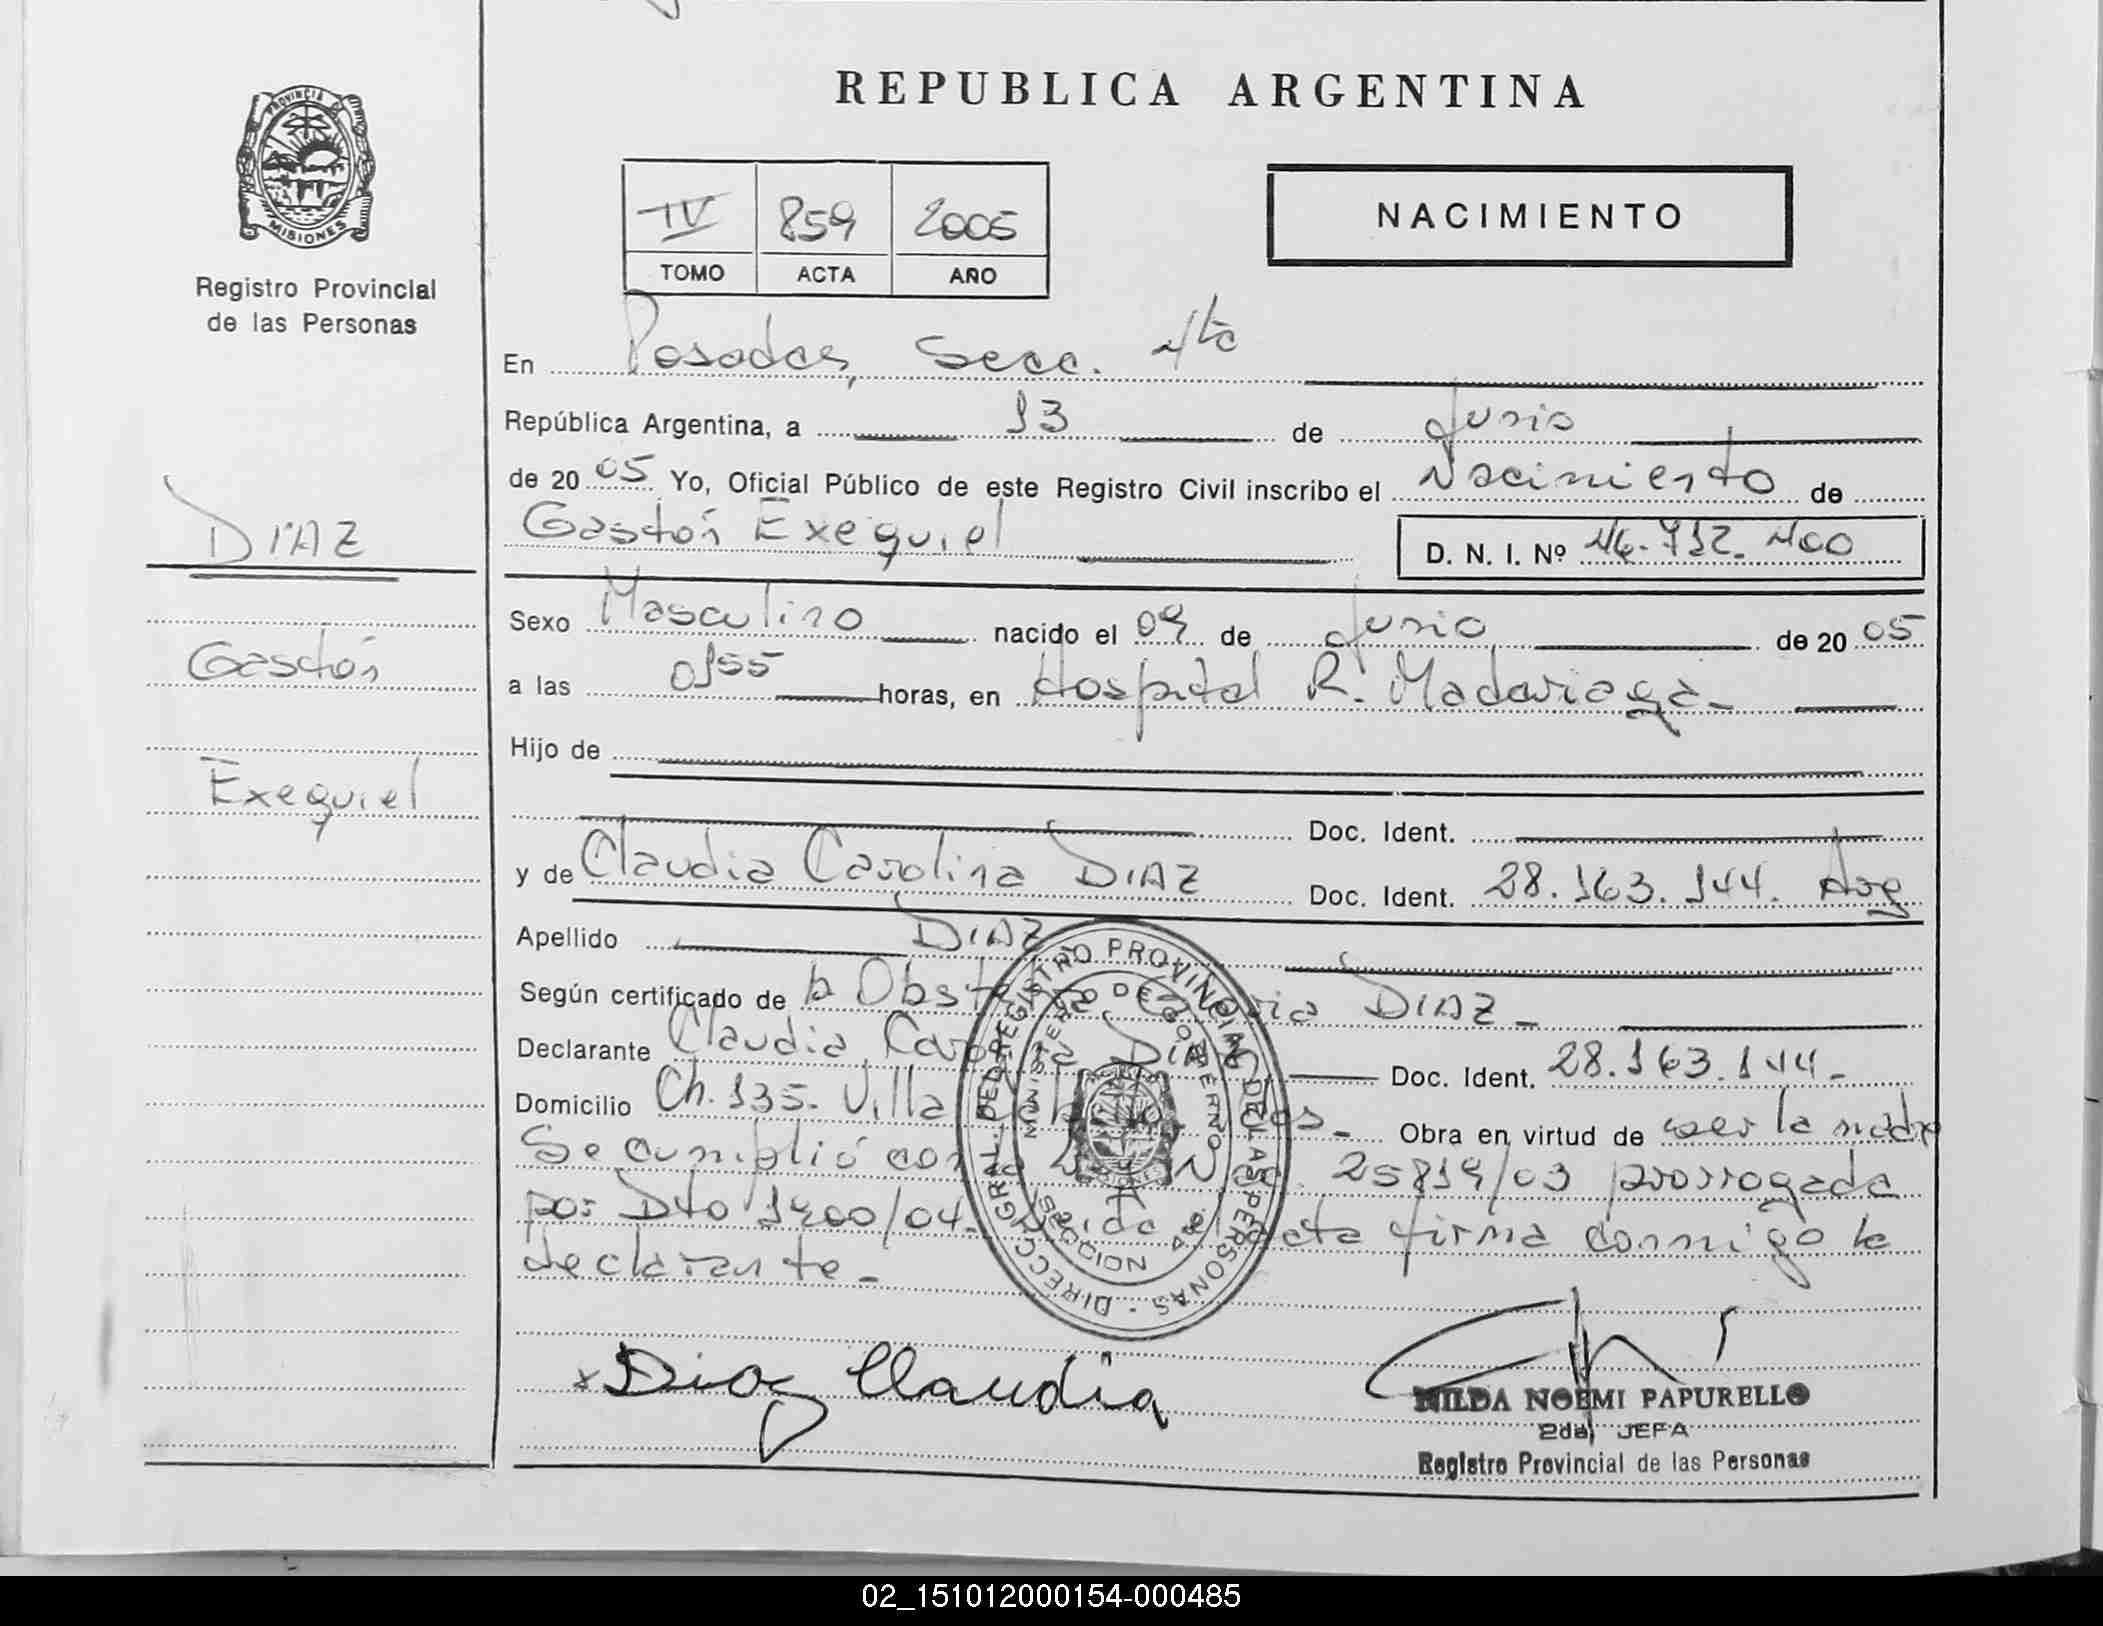 REPUBLICA ARGENTINA
PROVINCIA DE
MISIONES
Registro Provincial
de las Personas
IV 859 2005
TOMO ACTA AÑO
NACIMIENTO
En Posadas, Secc. 4ta
República Argentina, a 13 de Junio
de 20 05 Yo, Oficial Público de este Registro Civil inscribo el Nacimiento de
Gastón Exequiel D. N. I. Nº 46.732.400
DIAZ
Gastón
Exequiel
Sexo Masculino nacido el 09 de Junio de 20 05
a las 0155 horas, en Hospital R. Madariaga-
Hijo de
Doc. Ident.
y de Claudia Carolina DIAZ Doc. Ident. 28.163.144. Arg
Apellido DIAZ
Según certificado de la DIAZ-
Declarante Claudia Carolina Diaz Doc. Ident. 28.163.144-
Domicilio Ch. 135. Villa Obra en virtud de ser la madre
Se cumplió con 25819/03 prorrogada
por Dto 1400/04. acta firma conmigo la
declarante-
DIRECC. GRAL. DEL REGISTRO PROVINCIAL DE LAS PERSONAS
MINISTERIO DE GOBIERNO
MISIONES
x Diaz Claudia
HILDA NOEMI PAPURELLO
2da JEFA
Registro Provincial de las Personas
02_151012000154-000485